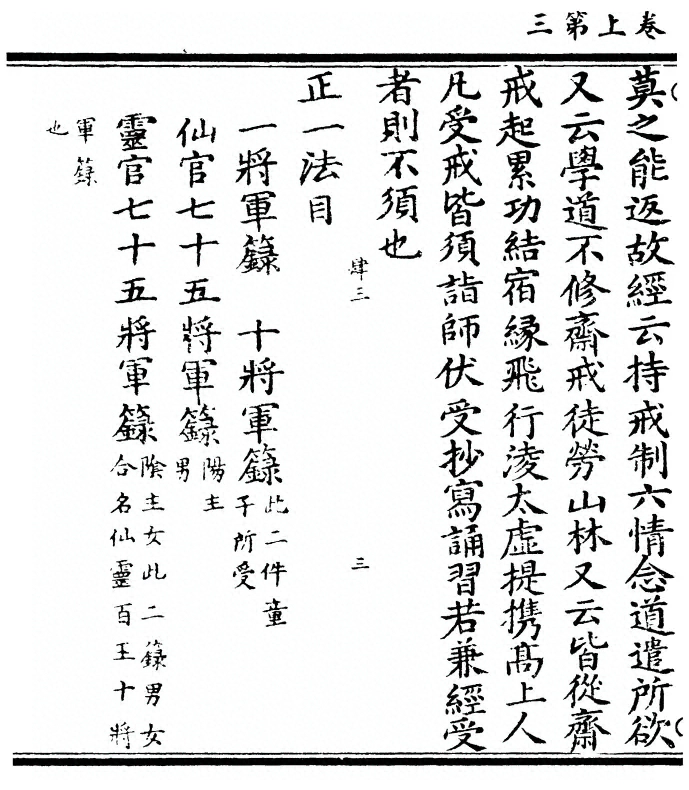 卷上第三
莫之能返故經云持戒制六情念道遣所欲
又云學道不修齋戒徒勞山林又云皆從齋
戒起累功結宿緣飛行淩太虛提携髙上人
凡受戒皆須詣師伏受抄寫誦習若兼經受
者則不須也
肆三
三
正一法目
一將軍籙　十將軍籙此二件童
子所受
仙官七十五將軍籙陽主
男
靈官七十五將軍籙陰主女此二籙男女
合名仙靈百五十將
軍籙
也